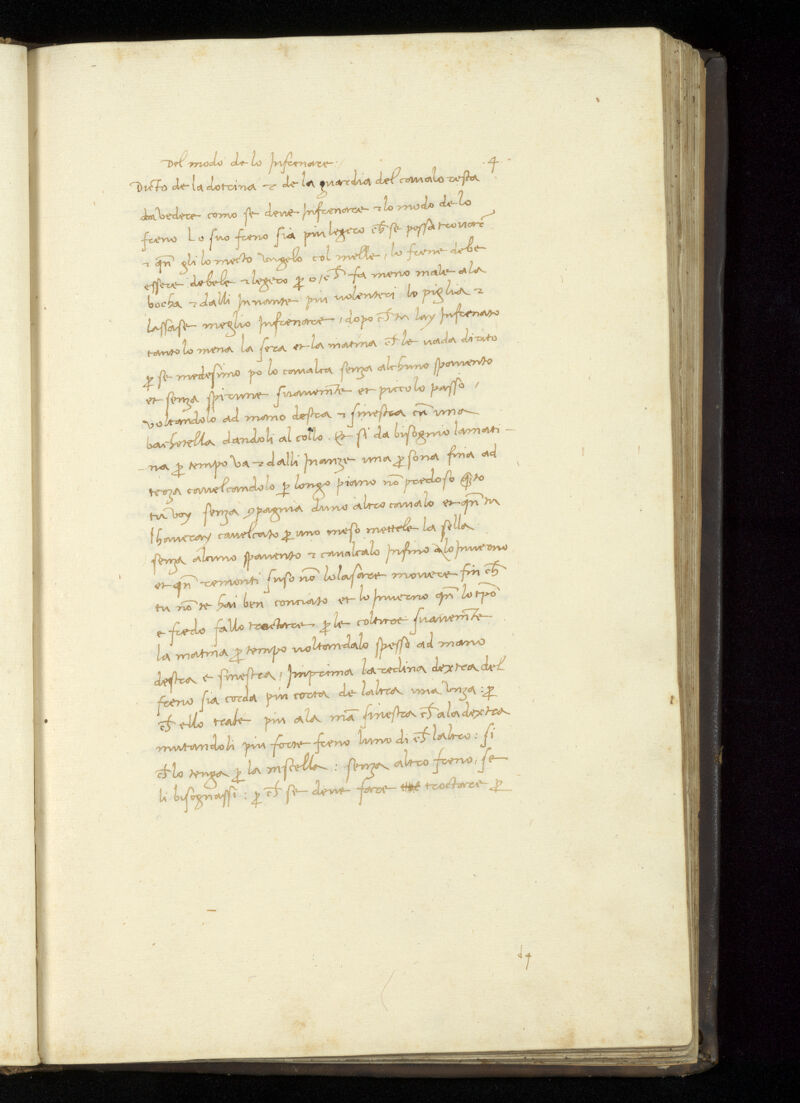 Del modo de lo Infrenare · 4 ·
Dicto de la dotrina & de la guardia del cavalo resta
da vedere como se deve Infrenare & lo modo de lo
freno Lo suo freno sia piu legero ch̄ se possa trovar̄
& qn̄ gli lo mecto Ungelo col melle / lo frene debe
essere debele & legero p̄ o / ch̄ fa meno male a la
bocha & dalli Innante piu volenteri lo piglia &
lassase meglio Infrenare / dopo ch̄ tu lay Infrenato
tanto lo mena la sera et la matina ch̄ le vada dirito
p̄ se medesimo po lo cavalca senza alchuno spavento
et senza spirune suavem̄te et piccolo passo /
voltandolo ad mano destra & sinestra cū una
bachetella dandoli al collo · Et si da bisognio la mati-
na p̄ tempo va & dalli Inanze una p̄sona fina ad
terza cavelcandolo p̄ longo piano nō predoso q̄to
tu voy senza 9pagnia duno altro cavalo et qn̄ tu
lhaveray cavelcato p̄ uno meso mettele la sella
senza alcuno spavento & cavalcalo Infino a lo Inverno
et qn̄ remonti suso nō lo lasare movere fin ch̄
tu nō te hai ben conciato et lo Inverno qn̄ lo tp̄o
e fredo fallo troctare p̄ le coltive suavem̄te
la matina p̄ tempo voltandalo spesso ad mano
destra e sinestra / Imprima la redina dextra del
freno sia corda piu corta de laltra una Unza : p̄
ch̄ ello trahe piu a la mā sinestra ch̄ a la dextra
mutandoli piu forte freno luno di ch̄ laltro : si
ch̄ lo tenga p̄ la mscella : senza altro freno, se
li bisognassi : p̄ ch̄ se deve fare troctare p̄
d4